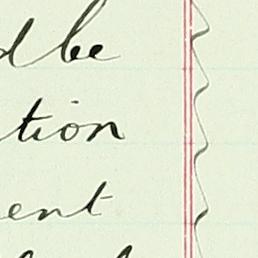 d be
tion
ent